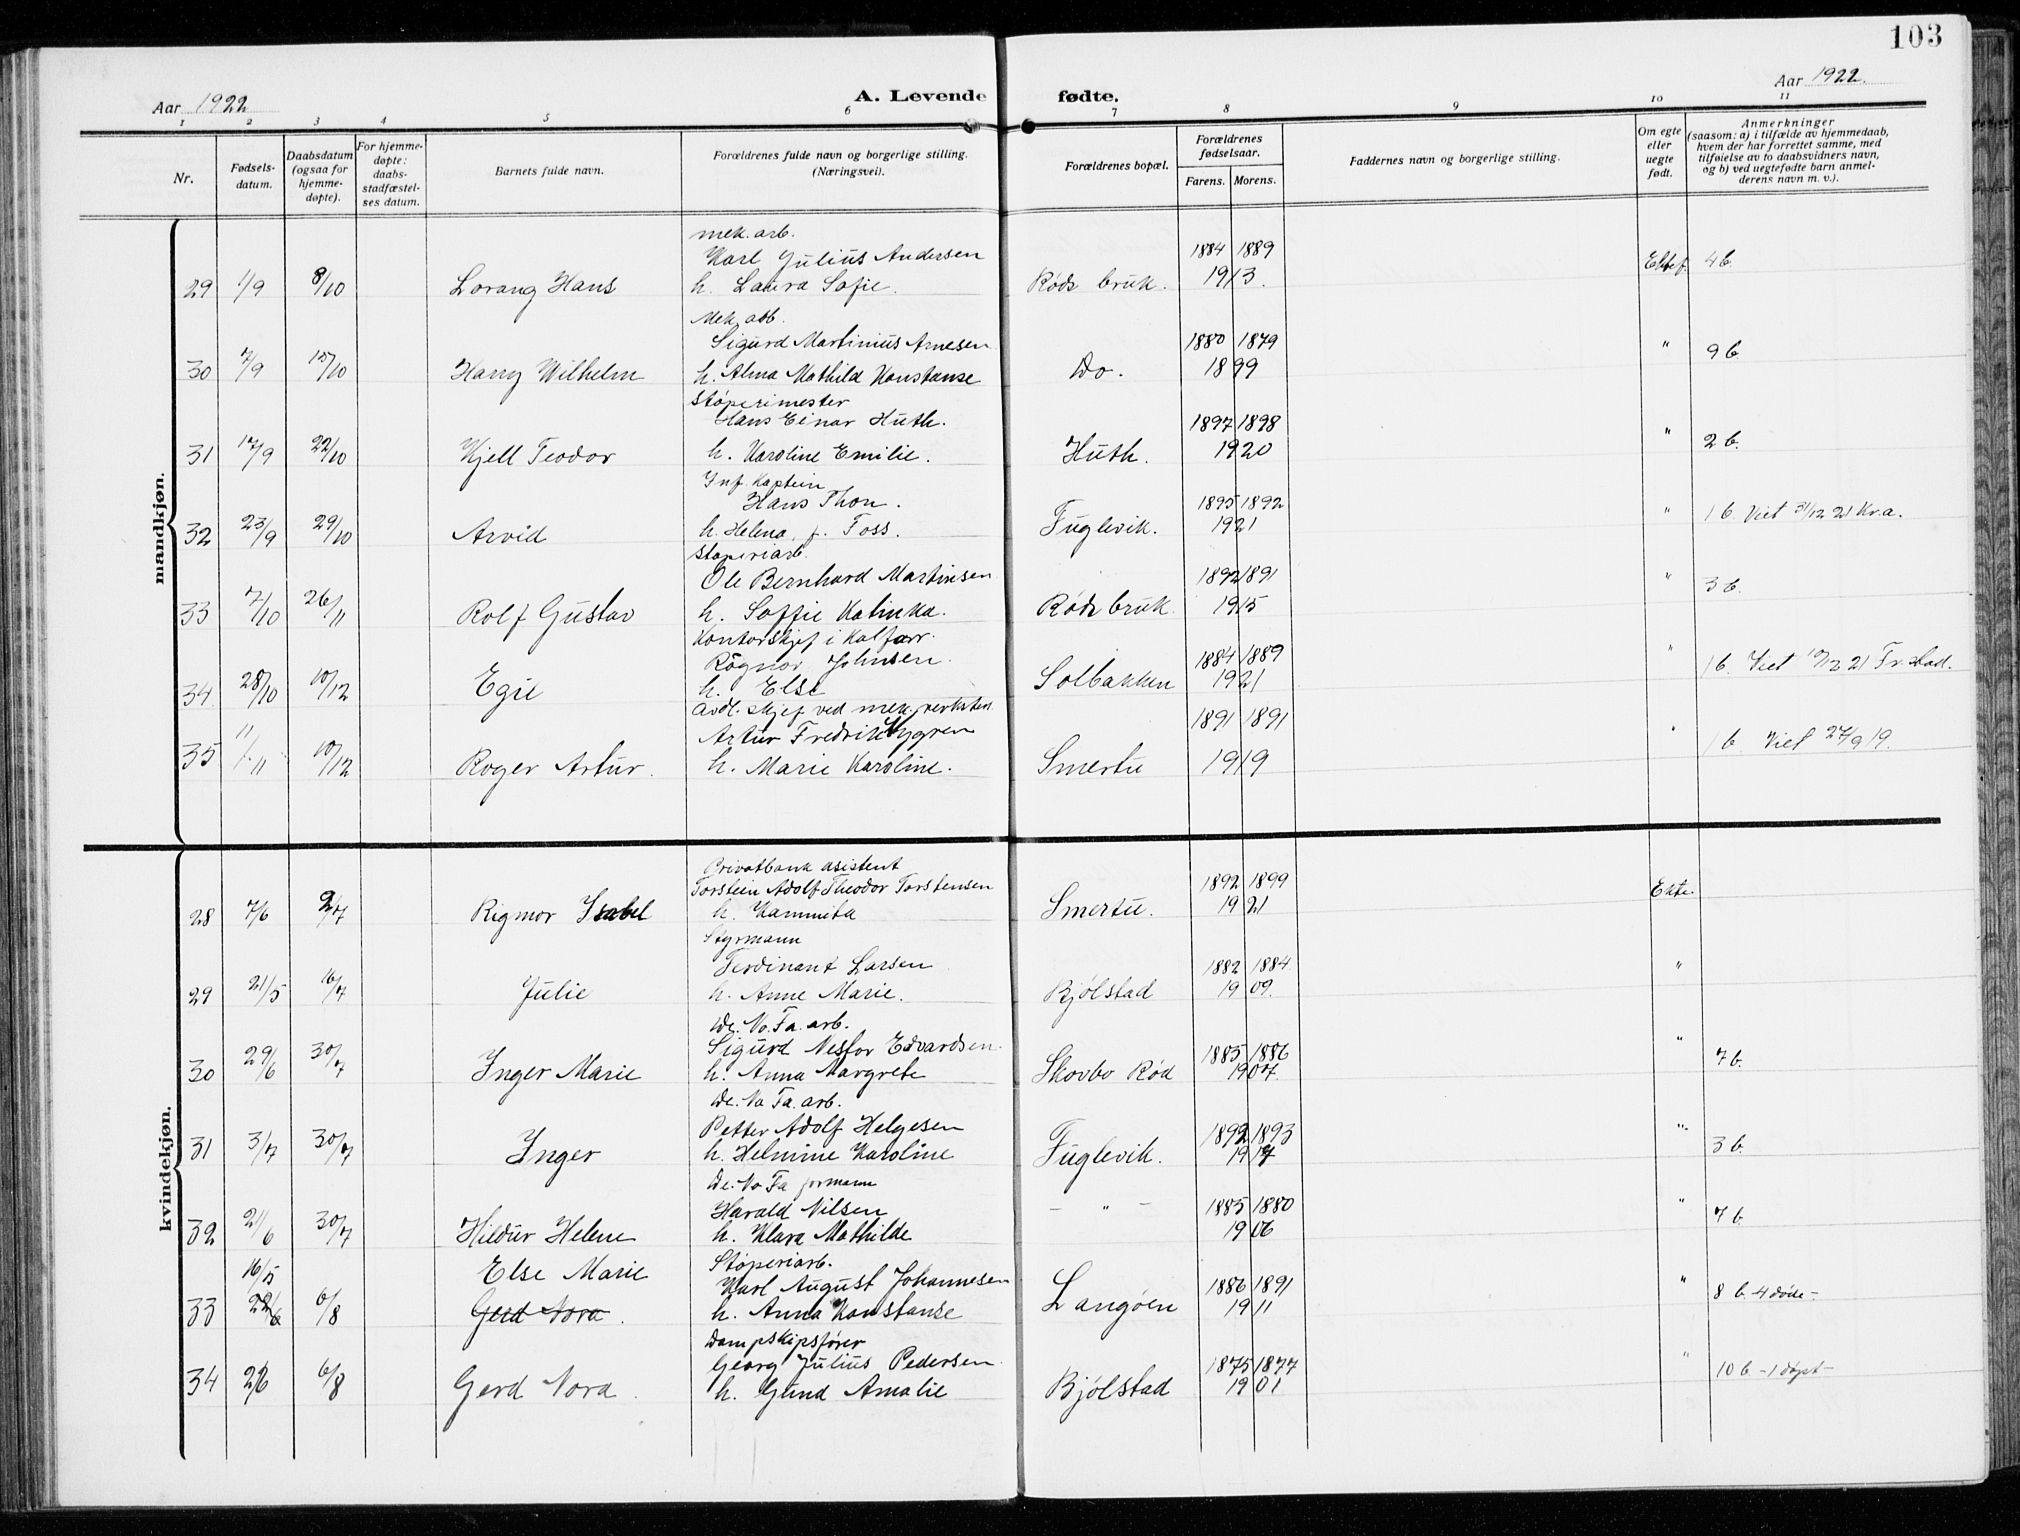 103
Aar 1922
A. Levende fødte.
Aar 1922.
1 2 3 4 5 6 7 8 9 10 11
Nr.
Fødsels-
datum.
Daabsdatum
(ogsaa for
hjemme-
døpte).
For hjemme-
døpte:
daabs-
stadfæstel-
ses datum.
Barnets fulde navn.
Forældrenes fulde navn og borgerlige stilling.
(Næringsvei).
Forældrenes bopæl.
Forældrenes
fødselsaar.
Farens. Morens.
Faddernes navn og borgerlige stilling.
Om egte
eller
uegte
født.
Anmerkninger
(saasom: a) i tilfælde av hjemmedaab,
hvem der har forrettet samme, med
tilføielse av to daabsvidners navn,
og b) ved uegtefødte barn anmel-
derens navn m. v.).
mandkjøn.
mek. arb.
Karl Julius Andersen 1884 1889
29 1/9 8/10 Lorang Hans h. Laura Sofie. Røds bruk. 1913. Ektef. 4 b.
Mek. arb.
Sigurd Martinius Arnesen 1880 1879
30 7/9 15/10 Harry Wilhelm h. Alma Mathild Konstanse Do. 1899 " 9 b.
Støperimester
Hans Einar Huth. 1897 1898
31 17/9 22/10 Kjell Teodor h. Karoline Emilie. Huth. 1920 " 2 b.
Inf. Kaptein
Hans Thon. 1895 1892
32 23/9 29/10 Arvid h. Helena, f. Foss. Fuglevik. 1921 " 1 b. Viet 31/12 21 Kr.a.
Støperiarb.
Ole Bernhard Martinsen 1892 1891
33 7/10 26/11 Rolf Gustav h. Soffie Katinka. Røds bruk 1915 " 3 b.
Kontorskjef i Kalfarr.
Ragnar Johnsen. 1884 1889
34 28/10 10/12 Egil h. Else Solbakken 1921 " 1 b. Viet 10/12 21 Fr.stad.
Avdl. skjef ved mek. verksted
Artur Fredrik Nygren 1891 1891
35 11/11 10/12 Roger Artur. h. Marie Karoline. Smertu 1919 " 1 b. Viet 27/9 19.
kvindekjøn.
Privatbank asistent
Torstein Adolf Theodor Torstensen 1892 1899
28 7/6 2/7 Rigmor Isabel h. Kammita Smertu. 1921 Ekte.
Styrmann
Ferdinant Larsen 1882 1884
29 21/5 16/7 Julie h. Anne Marie. Bjølstad 1909. "
De. No. Fa. arb.
Sigurd Nesfor Edvardsen. 1885 1886
30 29/6 30/7 Inger Marie h. Anna Margrete Skovbo Rød 1907. " 7 b.
De. No Fa. arb.
Petter Adolf Helgesen 1892 1893
31 3/7 30/7 Inger h. Helmine Karoline Fuglevik. 1917 " 3 b.
De. No Fa formann
Harald Nilsen - " - 1885 1880
32 21/6 30/7 Hildur Helene h. Klara Mathilde 1906 " 7 b.
Støperiarb.
16/5 Else Marie Karl August Johannesen 1886 1891
33 22/6 6/8 Gerd Nora. h. Anna Konstanse Langøen 1911 " 8 b. 4 døde-
Dampskipsfører
Georg Julius Pedersen 1875 1877
34 2/6 6/8 Gerd Nora. h. Gund Amalie Bjølstad 1901 " 10 b -1 døpt-